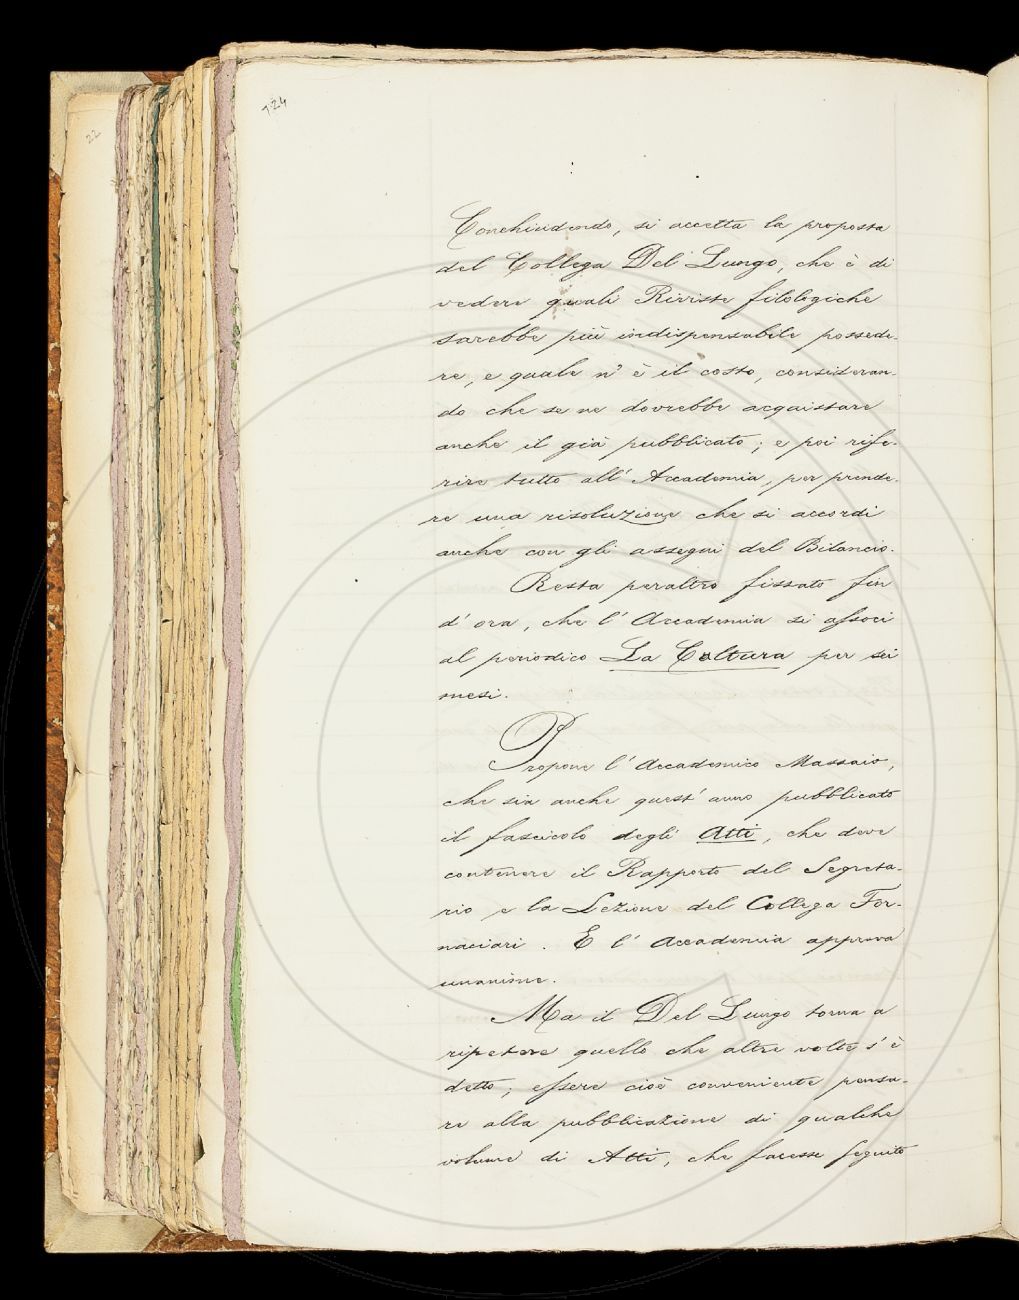 724
22
Conchiudendo, si accetta la proposta
del Collega Del Lungo, che è di
vedere quali Riviste filologiche
sarebbe più indispensabile possede-
re, e quale n' è il costo, consideran-
do che se ne dovrebbe acquistare
anche il già pubblicato; e poi rife-
rire tutto all' Accademia, per prende-
re una risoluzione che si accordi
anche con gli assegni del Bilancio.
Resta peraltro fissato fin
d' ora, che l' Accademia si associ
al periodico La Coltura per sei
mesi.
Propone l' Accademico Massaio,
che sia anche quest' anno pubblicato
il fascicolo degli Atti, che deve
contenere il Rapporto del Segreta-
rio e la Lezione del Collega For-
naciari. E l' Accademia approva
unanime.
Ma il Del Lungo torna a
ripetere quello che altre volte s' è
detto; essere cioè conveniente pensa-
re alla pubblicazione di qualche
volume di Atti, che facesse seguito